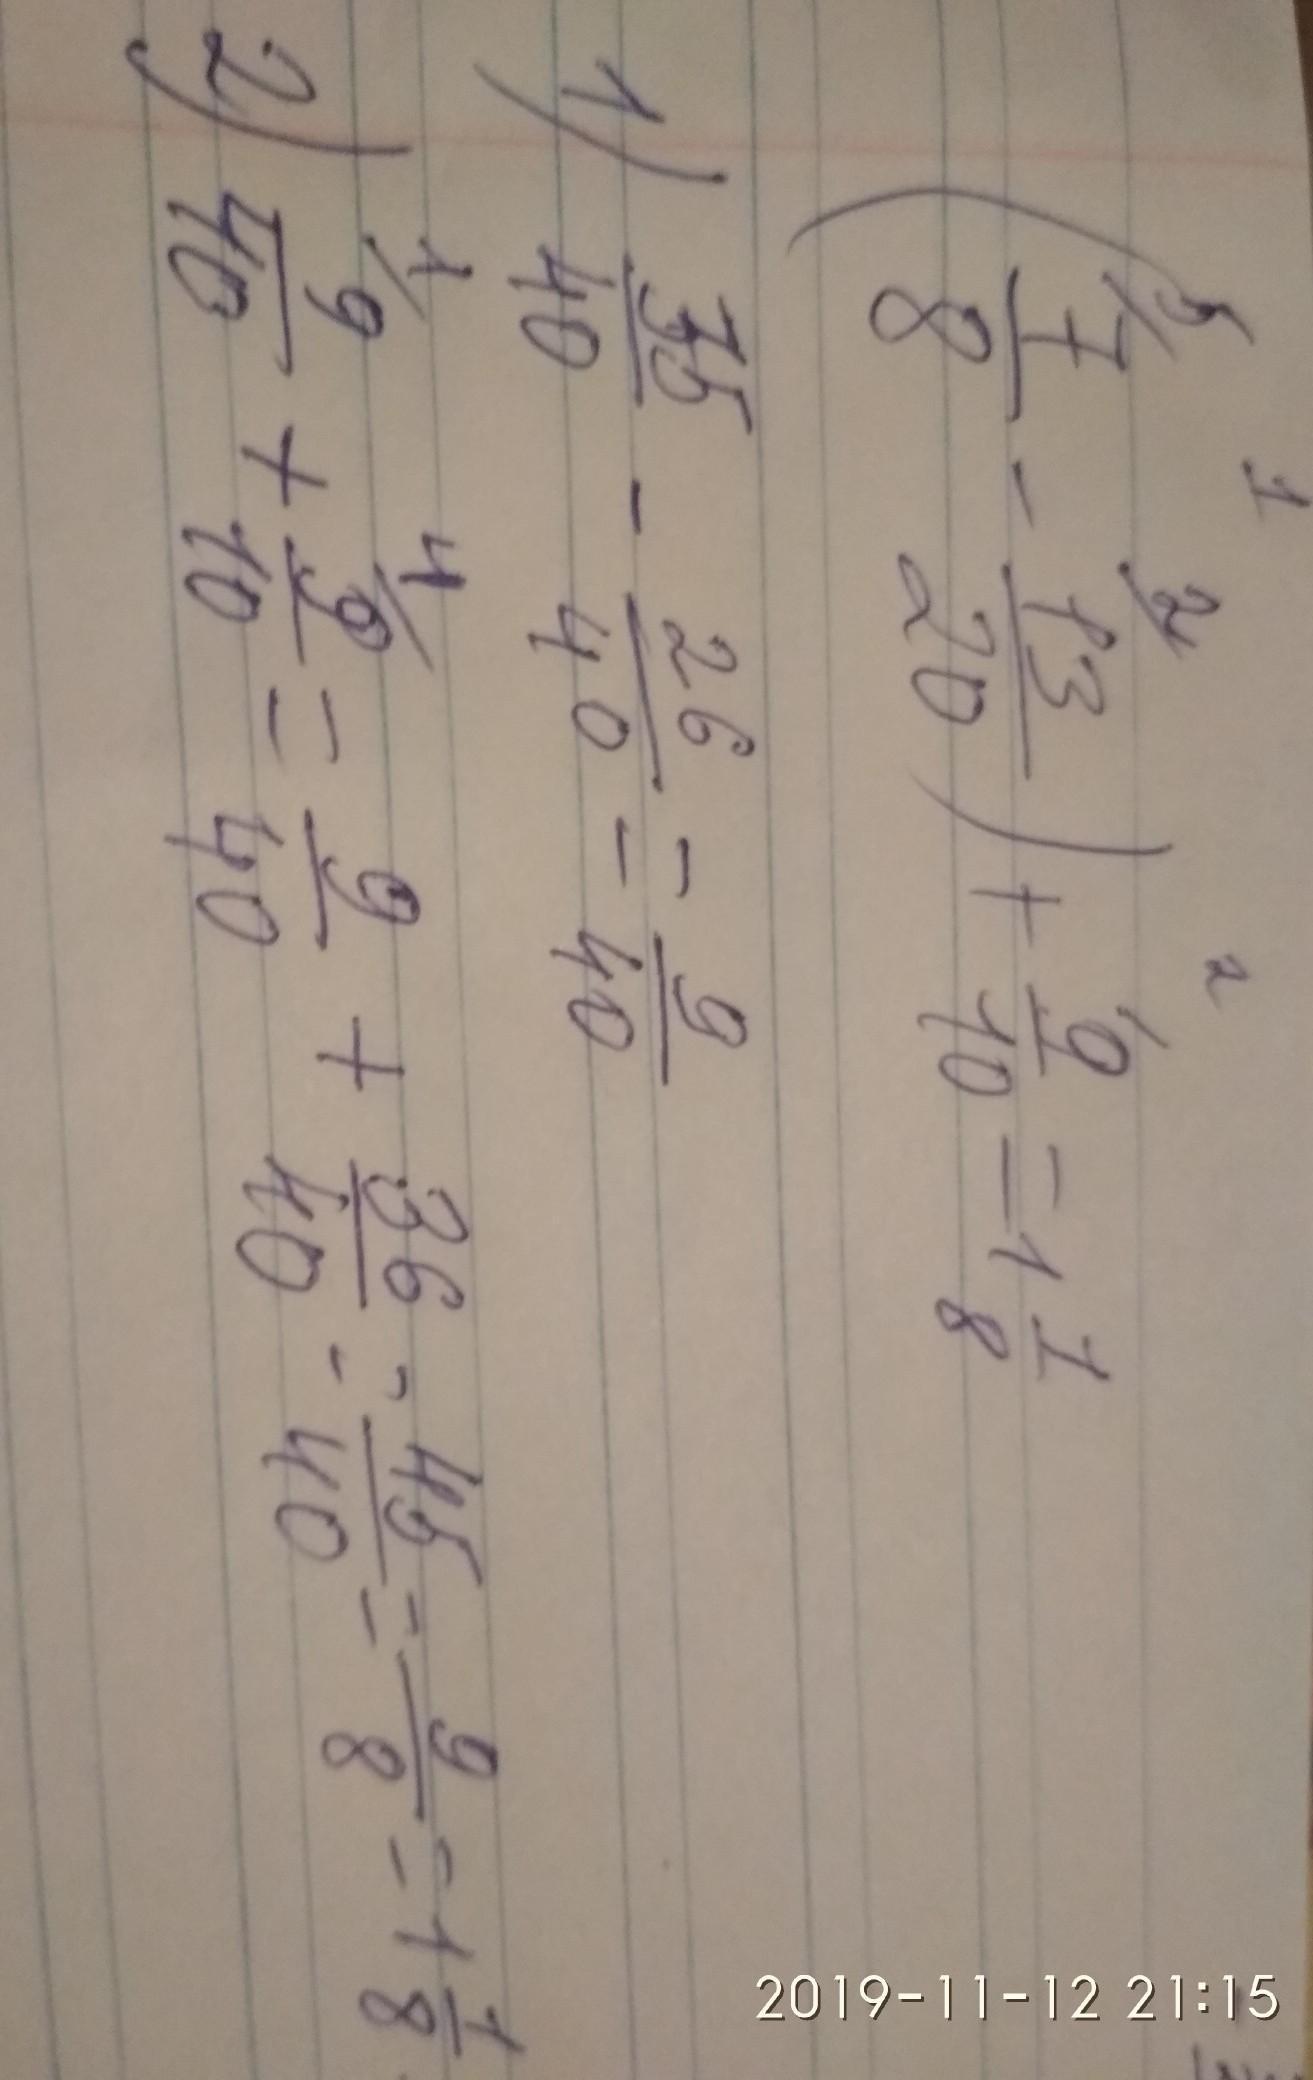 1 2
(7/8 - 13/20) + 9/10 = 1 1/8
5 2
1) 35/40 - 26/40 = 9/40
1 4
2) 9/40 + 9/10 = 9/40 + 36/40 = 45/40 = 9/8 = 1 1/8
2019-11-12 21:15